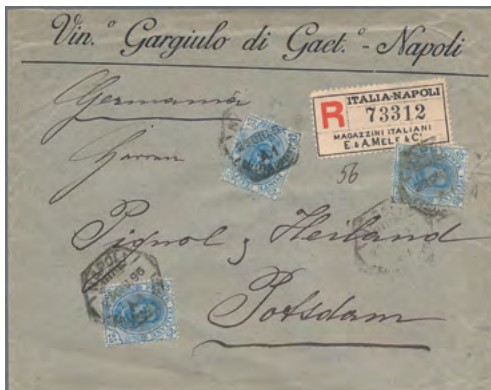 Vin.º Gargiulo di Gaet.º - Napoli
Germania
ITALIA-NAPOLI
R 73312
MAGAZZINI ITALIANI
E. & A. MELE & Cⁱ
Herren
56
Pignol & Heiland
Potsdam